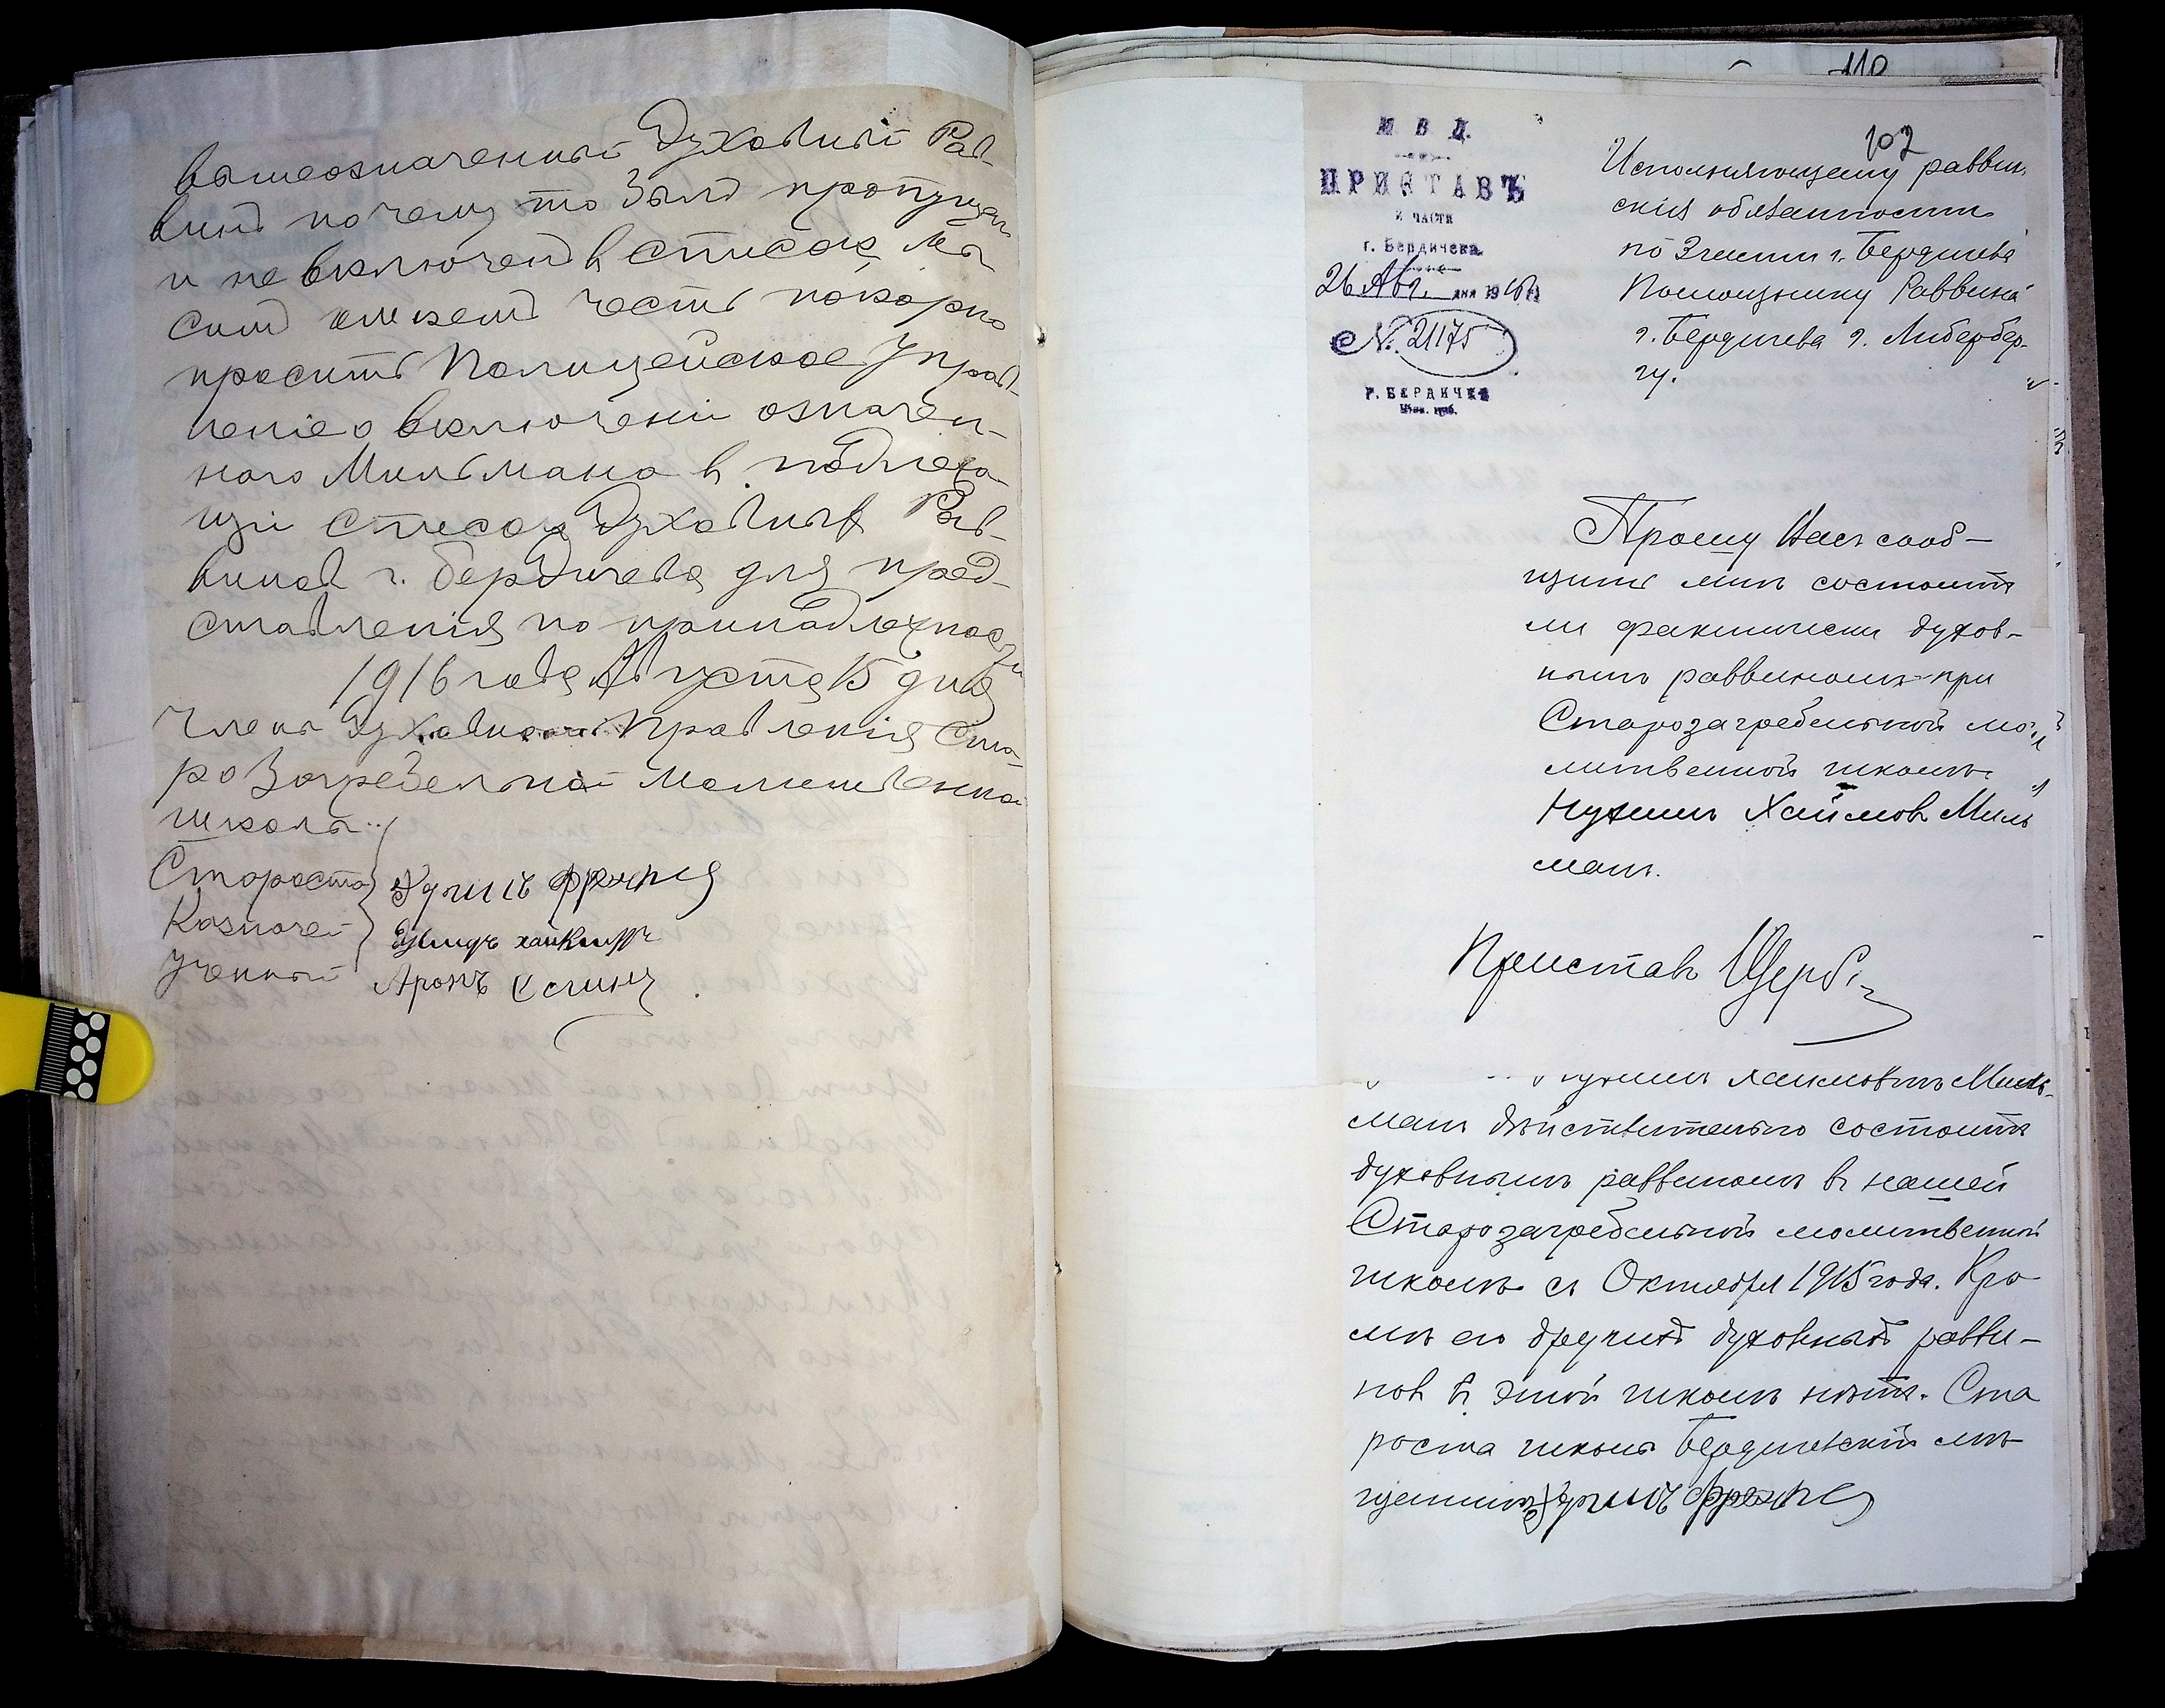 вышеозначенный Духовный Рав-
винъ почему то былъ пропущен
и не включенъ в списокъ, Мы
симъ имеемъ честь покорно
просить Полицейское Управ-
леніе о включеніи означен-
ного Мильмана в подлежа-
щій список Духовныхъ Рав-
винов г. Бердичева для пред-
ставленія по принадлежности
1916 года Августа 15 дня
Члены Духовного Правленія Ста-
розагребельной Молитвенной
школы
Староста
Казначей
Ученный Аронъ
110
107
М В Д.
ПРИСТАВЪ
ЧАСТИ
г. Бердичева
26 Авг. дня 1916 г.
№ 21175
Г. БЕРДИЧЕВ
Кіев. губ.
Исполняющему раввин
скія обязанности
по 3 части г. Бердичева
Помощнику Раввина
г. Бердичева г. Либербер-
гу.
Прошу Васъ сооб-
щить мнѣ состоитъ
ли фактически духов-
нымъ раввиномъ при
Старозагребельной мо-
литвенной школѣ
Нухимъ Хаимов Миль
манъ.
Приставъ
Нухимъ Хаимовичъ Миль-
манъ дѣйствительно состоитъ
духовнымъ раввиномъ въ нашей
Старозагребельной молитвенной
школѣ съ Октября 1915 года. Кро
мѣ его другихъ духовныхъ равви-
нов въ этой школѣ нѣтъ. Ста
роста школы Бердичевскій мѣ
щанинъ